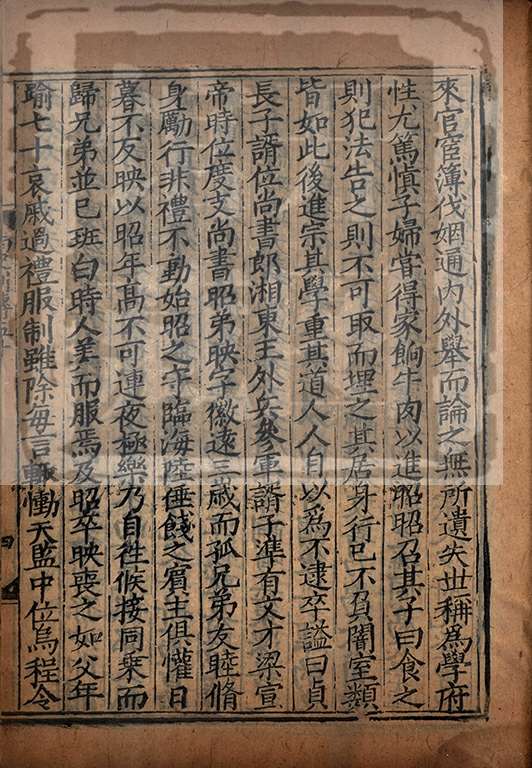 來官宦薄伐姻通内外舉而論之無所遺失世稱為學府
性尤篤慎子婦嘗得家餉牛肉以進昭昭召其子曰食之
則犯法告之則不可取而埋之其居身行已不負闇室類
皆如此後進宗其學重其道人人自以為不逮卒謚曰貞
長子諝位尚書郎湘東王外兵參軍諝子準有文才梁宣
帝時位度支尚書昭弟映字徽遠三歲而孤兄弟友睦脩
身勵行非禮不動始昭之守臨海陸倕餞之賓主俱懽日
暮不反映以昭年高不可連夜極樂乃自往候接同乗而
歸兄弟並已班白時人羙而服焉及昭卒映喪之如父年
踰七十哀戚過禮服制雖除每言輒慟天監中位烏程令